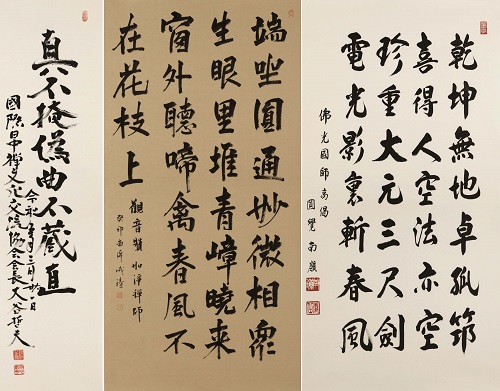 乾坤無地卓孤筇
喜得人空法亦空
珍重大元三尺劍
電光影裏斬春風
佛光國師偈
圓覺 南嶺
端坐圓通妙微相眾
生眼里堆青嶂曉来
窗外聽啼禽春風不
在花枝上
觀音贊 如淨禅師
癸卯
真不掩偽曲不藏直
令和年三月廿一日
國際日中禅文化交流協会会長大谷哲夫